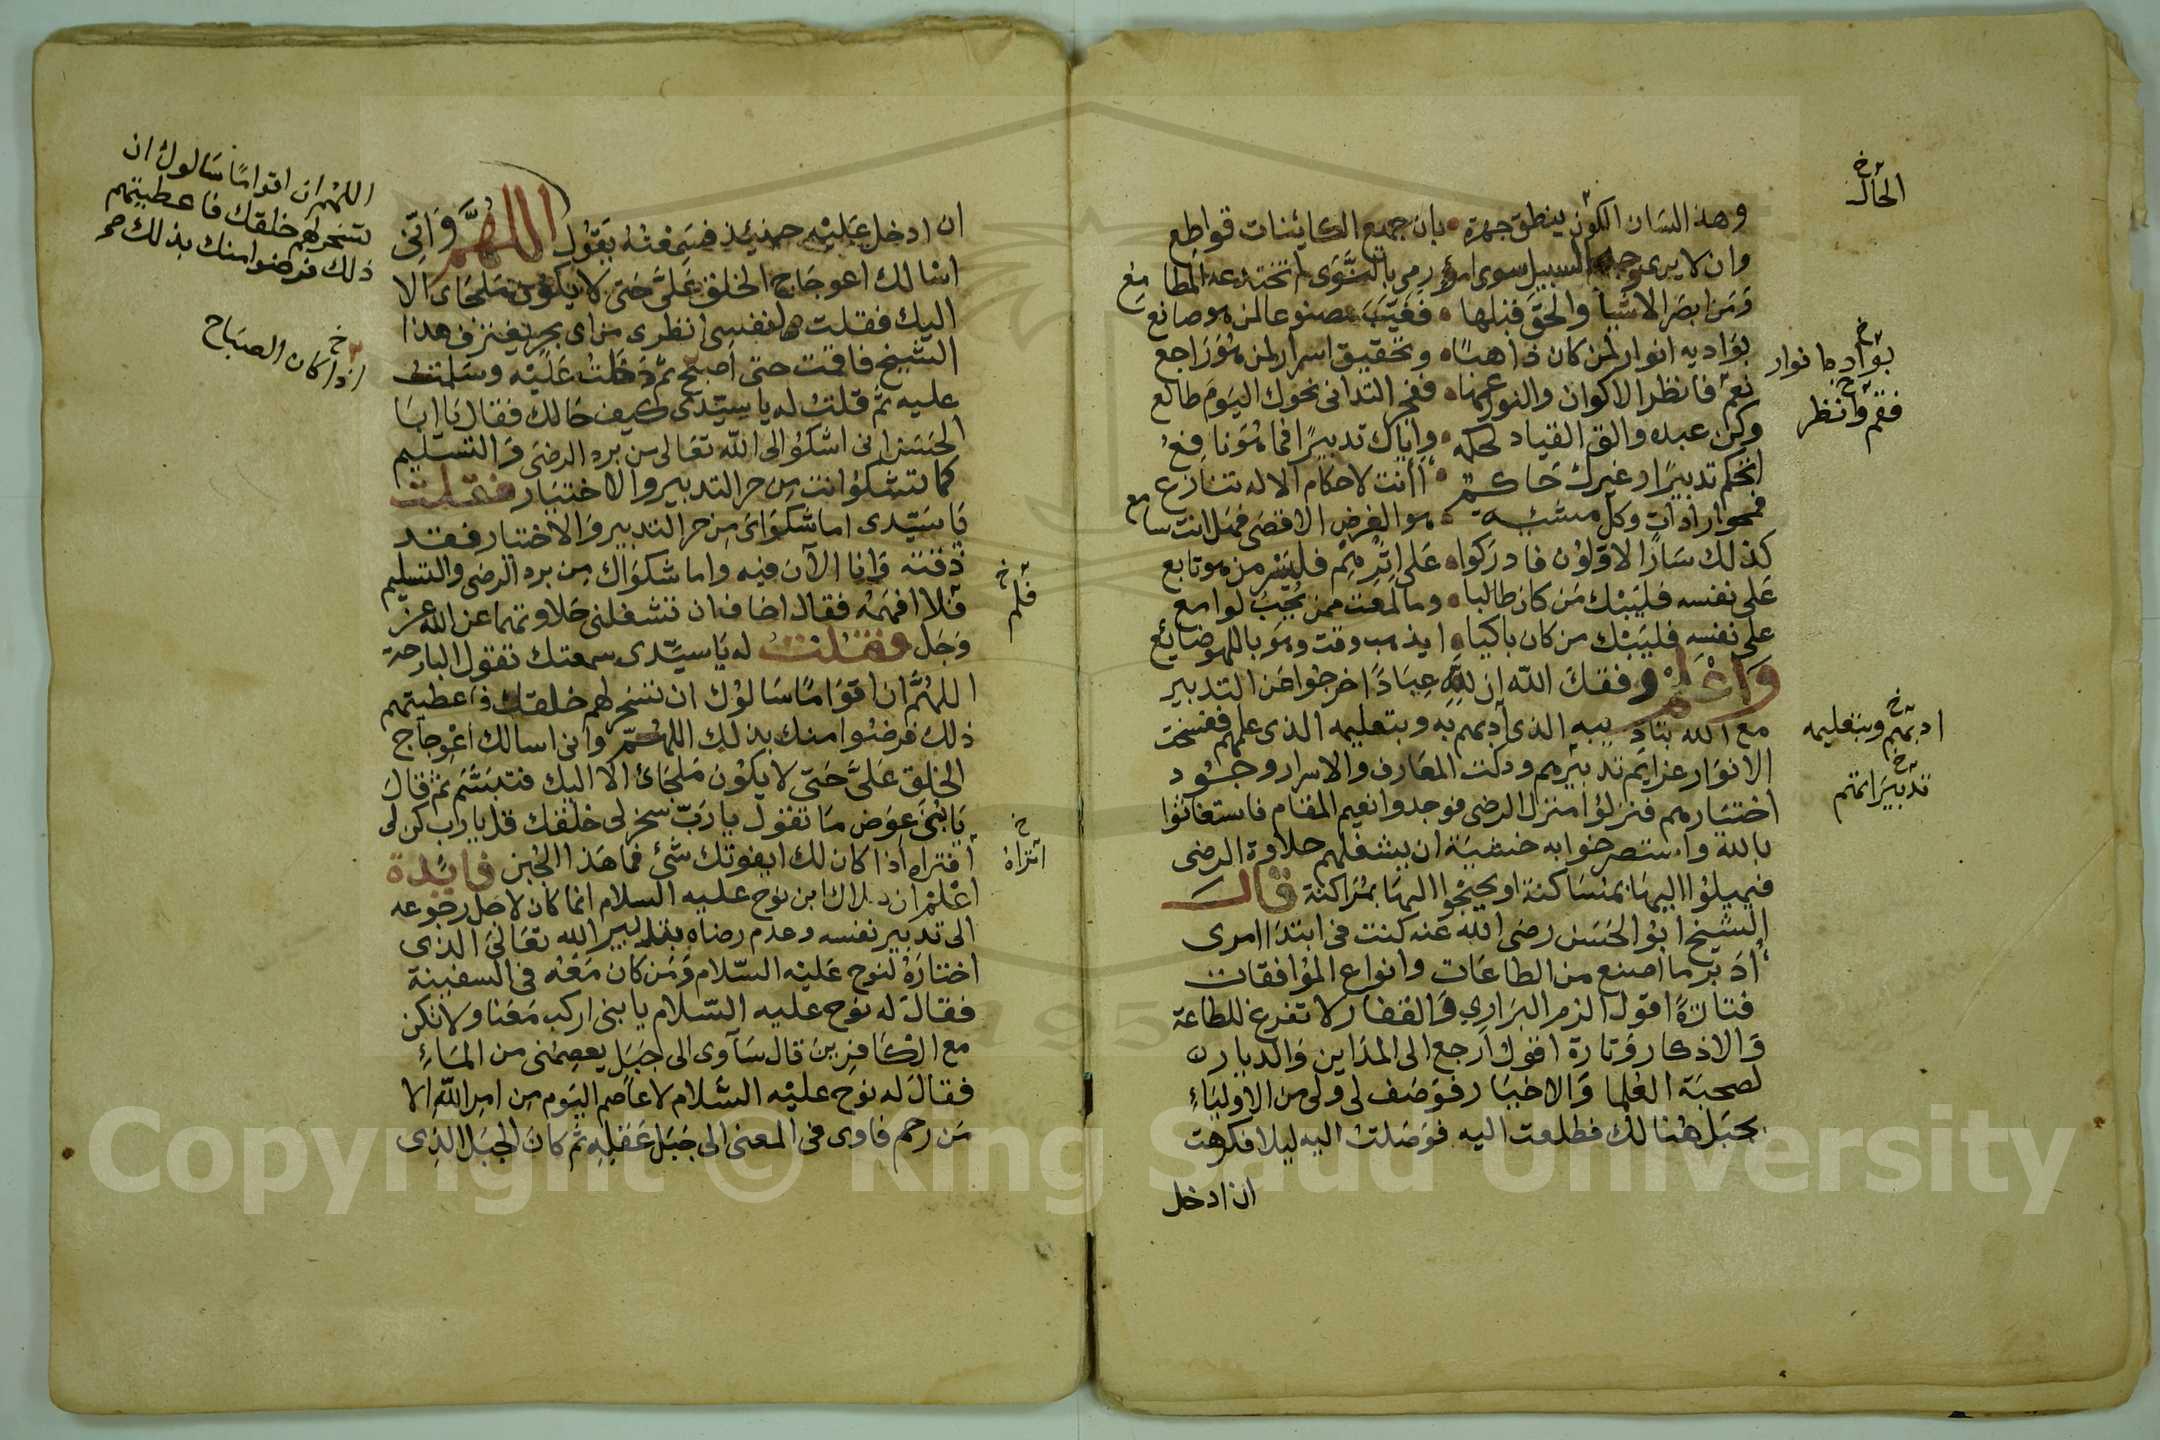 الحال خ
وهذا لسان الكون ينطق جهرة بان جميع الكائنات قواطع
وان لا يرى وجه السبيل سوى امرئ رمى بالسوى لم تختدعه المطامع
ومن ابصر الاشيا والحق قبلها فغيب مصنوعا لمن هو صانع
بواديه انوار لمن كان ذاهبا وتحقيق اسرار لمن هو راجع
بوادبها نوار خ
نعم فانظر الاكوان والنور عمها ففجر التدانى نحوك اليوم طالع
فقم وانظر خ
وكن عبده والق القياد لحكمه واياك تدبيرا فما هو نافع
اتحكم تدبيرا وغيرك حاكم أأنت لاحكام الاله تنازع
فمحو ارادات وكل مشيئة هو الغرض الاقصى فهل انت سامع
كذلك سار الاولون فادركوا على اثرهم فليسر من هو تابع
على نفسه فليبك من كان طالبا وما لمعت ممن يحب لوامع
على نفسه فليبك من كان باكيا ايذهب وقت وهو باللهو ضائع
واعلم وفقك الله ان لله عبادا خرجوا عن التدبير
مع الله بتاديبه الذى أدبهم به وبتعليمه الذى علمهم ففسخت
ادبهم وبتعليمه خ
الانوار عزايم تدبيرهم ودكت المعارف والاسرار وجود
تدبيراتهم خ
اختيارهم فنزلوا منزل الرضى فوجدوا نعيم المقام فاستغاثوا
بالله واستصرخوا به خشية ان يشغلهم حلاوة الرضى
فيميلوا اليها بمساكنة او يجنحوا اليها بمراكنة قال
الشيخ ابو الحسن رضى الله عنه كنت فى ابتدا امرى
أدبر ما اصنع من الطاعات وانواع الموافقات
فتارة اقول الزم البرارى والقفار لا تفرغ للطاعة
والاذكار وتارة اقول ارجع الى المداين والديار
لصحبة العلما والاخيار فوصف لى ولى من الاولياء
بجبل هنالك فطلعت اليه فوصلت اليه ليلا فكرهت
ان ادخل
ان ادخل عليه حينئذ فسمعته يقول اللهم وانى
اللهم ان اقواما سالوك ان
تسخر لهم خلقك فاعطيتهم
ذلك فرضوا منك بذلك صح
اسالك اعوجاج الخلق على حتى لا يكون ملجاى الا
اليك فقلت يا نفسى انظرى من اى بحر يغترف هذا
الشيخ فاقمت حتى اصبح ثم دخلت عليه وسلمت
اذا كان الصباح خ
عليه ثم قلت له يا سيدى كيف حالك فقال يا ابا
الحسن انى اشكو الى الله تعالى من برد الرضى والتسليم
كما تشكو انت من حر التدبير والاختيار فقلت
يا سيدى اما شكواى من حر التدبير والاختيار فقد
ذقته وانا الآن فيه واما شكواك من برد الرضى والتسليم
فلم خ
فلا افهمه فقال اخاف ان تشغلنى حلاوتهما عن الله عز
وجل فقلت له يا سيدى سمعتك تقول البارحة
اللهم ان اقواما سالوك ان تسخر لهم خلقك فاعطيتهم
ذلك فرضوا منك بذلك اللهم وانى اسالك اعوجاج
الخلق على حتى لا يكون ملجائ الا اليك فتبسم ثم قال
يا بنى عوض ما تقول يا رب سخر لى خلقك قل يا رب كن لى
افتراه اذا كان لك ايفوتك شئ فما هذا الجبن فايدة
اتراه خ
اعلم ان هلاك ابن نوح عليه السلام انما كان لاجل رجوعه
الى تدبير نفسه وعدم رضاه بتدبير الله تعالى الذى
اختاره لنوح عليه السلام ومن كان معه فى السفينة
فقال له نوح عليه السلام يا بنى اركب معنا ولا تكن
مع الكافرين قال سآوى الى جبل يعصمنى من الماء
فقال له نوح عليه السلام لا عاصم اليوم من امر الله الا
من رحم فاوى فى المعنى الى جبل عقله ثم كان الجبل الذى
Copyright © King Saud University